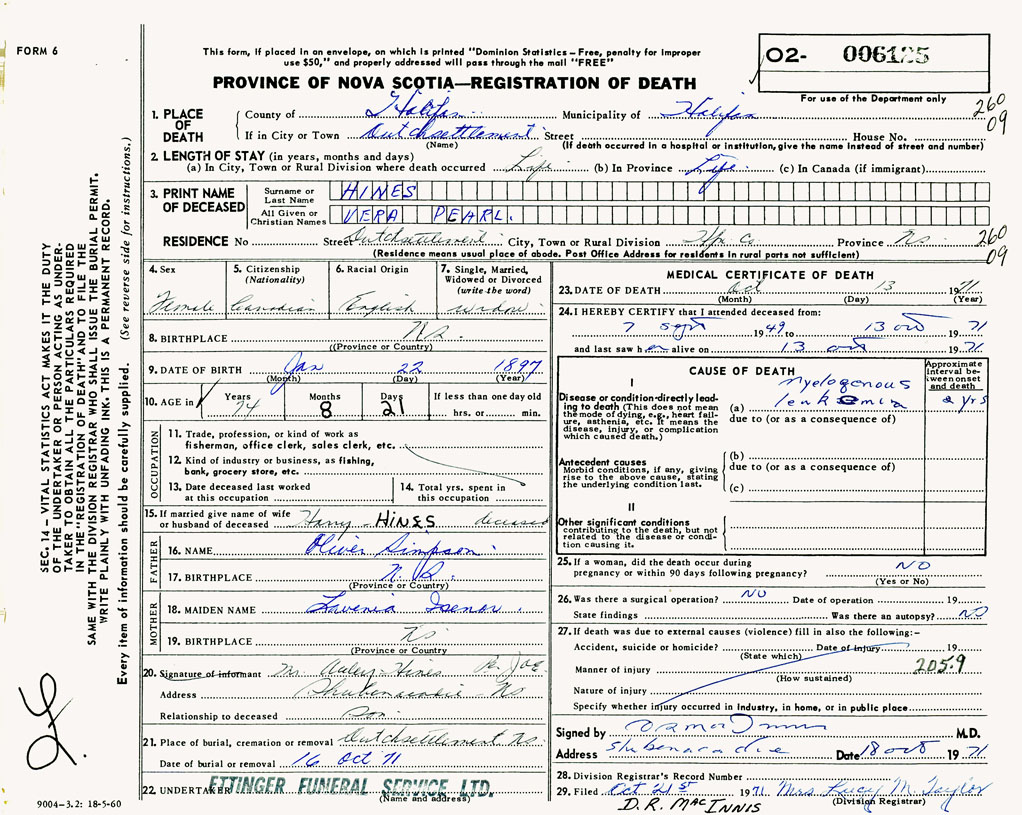 FORM 6
This form, if placed in an envelope, on which is printed "Dominion Statistics — Free, penalty for improper
use $50," and properly addressed will pass through the mail "FREE"
PROVINCE OF NOVA SCOTIA—REGISTRATION OF DEATH
02- 006125
For use of the Department only
260
09
1. PLACE OF DEATH
County of Halifax Municipality of Halifax
If in City or Town Dutchsettlement Street House No.
(Name) (If death occurred in a hospital or institution, give the name instead of street and number)
2. LENGTH OF STAY (in years, months and days)
(a) In City, Town or Rural Division where death occurred Life (b) In Province Life (c) In Canada (if immigrant)
3. PRINT NAME OF DECEASED
Surname or Last Name HINES
All Given or Christian Names VERA PEARL.
RESIDENCE No Street Dutchsettlement City, Town or Rural Division Hfx Co. Province NS
260
09
(Residence means usual place of abode. Post Office Address for residents in rural parts not sufficient)
4. Sex
Female
5. Citizenship
(Nationality)
Canadian
6. Racial Origin
English
7. Single, Married,
Widowed or Divorced
(write the word)
widow
8. BIRTHPLACE NS.
((Province or Country)
9. DATE OF BIRTH Jan 22 1897
(Month) (Day) (Year)
10. AGE in
Years 74
Months 8
Days 21
If less than one day old
hrs. or min.
OCCUPATION
11. Trade, profession, or kind of work as
fisherman, office clerk, sales clerk, etc.
12. Kind of industry or business, as fishing,
bank, grocery store, etc.
13. Date deceased last worked
at this occupation
14. Total yrs. spent in
this occupation
15. If married give name of wife
or husband of deceased Harry HINES deceased
FATHER
16. NAME Oliver Simpson.
17. BIRTHPLACE N.S.
(Province or Country)
MOTHER
18. MAIDEN NAME Lavenia Isenor.
19. BIRTHPLACE NS
(Province or Country
20. Signature of informant Mr. Hines
Address Shubenacadie NS
Relationship to deceased Son.
21. Place of burial, cremation or removal Dutchsettlement NS.
Date of burial or removal 16 Oct 71
22. UNDERTAKER ETTINGER FUNERAL SERVICE LTD.
(Name and address)
MEDICAL CERTIFICATE OF DEATH
23. DATE OF DEATH Oct 13 1971
(Month) (Day) (Year)
24. I HEREBY CERTIFY that I attended deceased from:
7 Sept 1949 to 13 oct 1971
and last saw her alive on 13 oct 1971
CAUSE OF DEATH
Approximate
interval be-
tween onset
and death
I
Disease or condition directly lead-
ing to death (This does not mean
the mode of dying, e.g., heart fail-
ure, asthenia, etc. It means the
disease, injury, or complication
which caused death.)
(a) myelogenous
leukemia 2 yrs
due to (or as a consequence of)
Antecedent causes
Morbid conditions, if any, giving
rise to the above cause, stating
the underlying condition last.
(b)
due to (or as a consequence of)
(c)
II
Other significant conditions
contributing to the death, but not
related to the disease or condi-
tion causing it.
25. If a woman, did the death occur during
pregnancy or within 90 days following pregnancy? NO
(Yes or No)
26. Was there a surgical operation? NO Date of operation 19
State findings Was there an autopsy? NO
27. If death was due to external causes (violence) fill in also the following:—
Accident, suicide or homicide? Date of injury 19
(State which)
Manner of injury 205.9
(How sustained)
Nature of injury
Specify whether injury occurred in industry, in home, or in public place
Signed by M.D.
Address Shubenacadie Date 18 oct 1971
28. Division Registrar's Record Number
29. Filed Oct 21st 1971 Mrs Lucy M. Taylor
(Division Registrar)
D.R. MACINNIS
SEC. 14 – VITAL STATISTICS ACT MAKES IT THE DUTY
OF THE UNDERTAKER OR PERSON ACTING AS UNDER-
TAKER TO OBTAIN ALL THE PARTICULARS REQUIRED
IN THE "REGISTRATION OF DEATH" AND TO FILE THE
SAME WITH THE DIVISION REGISTRAR WHO SHALL ISSUE THE BURIAL PERMIT.
WRITE PLAINLY WITH UNFADING INK. THIS IS A PERMANENT RECORD.
Every item of information should be carefully supplied. (See reverse side for instructions.)
9004-3.2: 18-5-60